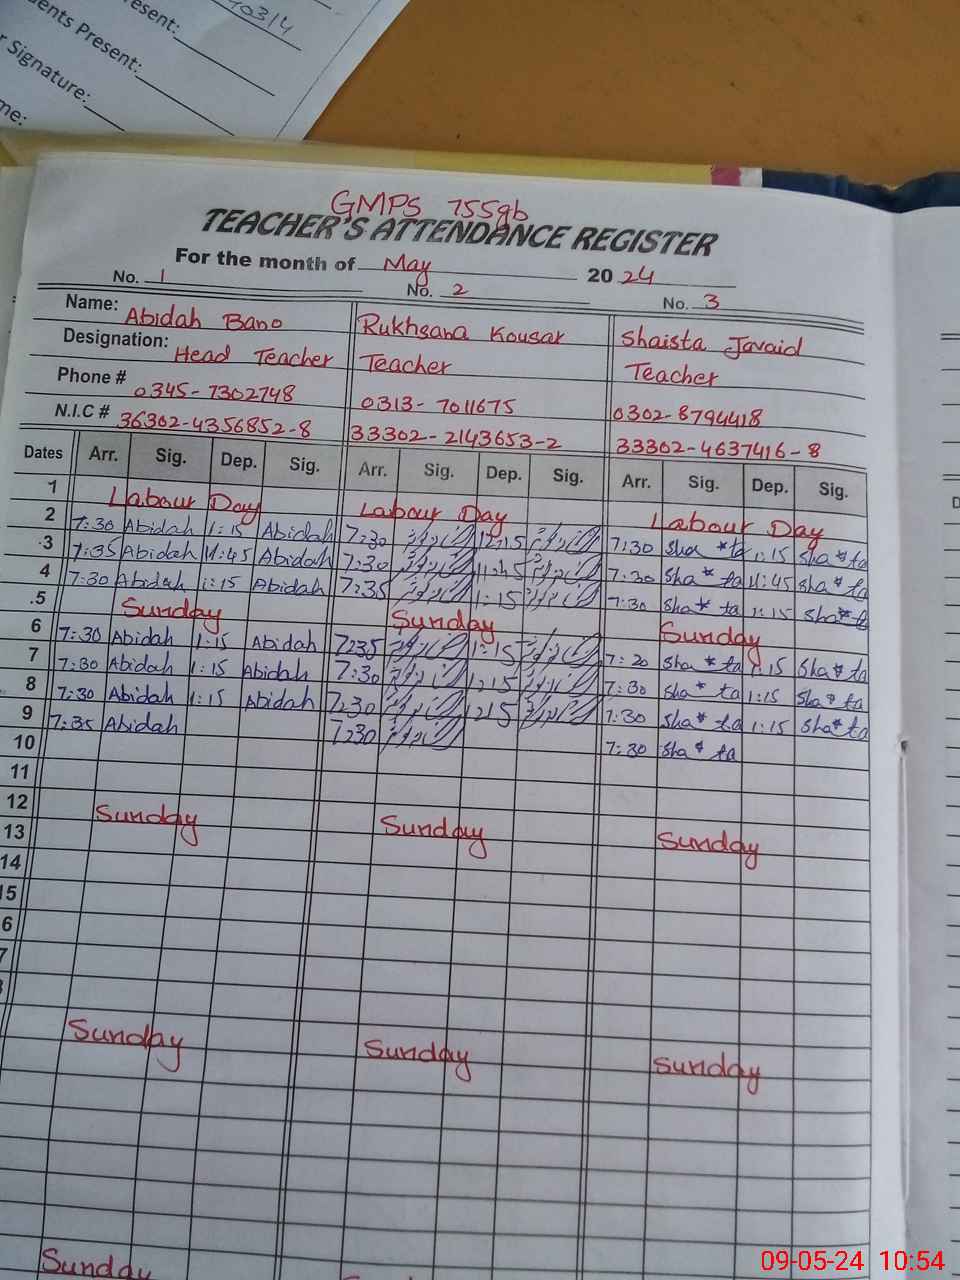 10314
Present:
ents Present:
r Signature:
me:
GMPS 755gb
TEACHER'S ATTENDANCE REGISTER
For the month of May 20 24
No. 1 No. 2 No. 3
Name: Abidah Bano Rukhsana Kousar Shaista Javaid
Designation: Head Teacher Teacher Teacher
Phone # 0345-7302748 0313-7011675 0302-8794418
N.I.C # 36302-4356852-8 33302-2143653-2 33302-4637416-8
Dates Arr. Sig. Dep. Sig. Arr. Sig. Dep. Sig. Arr. Sig. Dep. Sig.
1 Labour Day Labour Day Labour Day
2 7:30 Abidah 1:15 Abidah 7:30 1:15 7:30 Sha*ta 1:15 Sha*ta
3 7:35 Abidah 11:45 Abidah 7:30 11:45 7:30 Sha*ta 11:45 Sha*ta
4 7:30 Abidah 1:15 Abidah 7:35 1:15 7:30 Sha*ta 1:15 Sha*ta
5 Sunday Sunday Sunday
6 7:30 Abidah 1:15 Abidah 7:35 1:15 7:20 Sha*ta 1:15 Sha*ta
7 7:30 Abidah 1:15 Abidah 7:30 1:15 7:30 Sha*ta 1:15 Sha*ta
8 7:30 Abidah 1:15 Abidah 7:30 1:15 7:30 Sha*ta 1:15 Sha*ta
9 7:35 Abidah 7:30 7:30 Sha*ta
10
11
12 Sunday Sunday Sunday
13
14
15
6
7
Sunday Sunday Sunday
Sunday
09-05-24 10:54